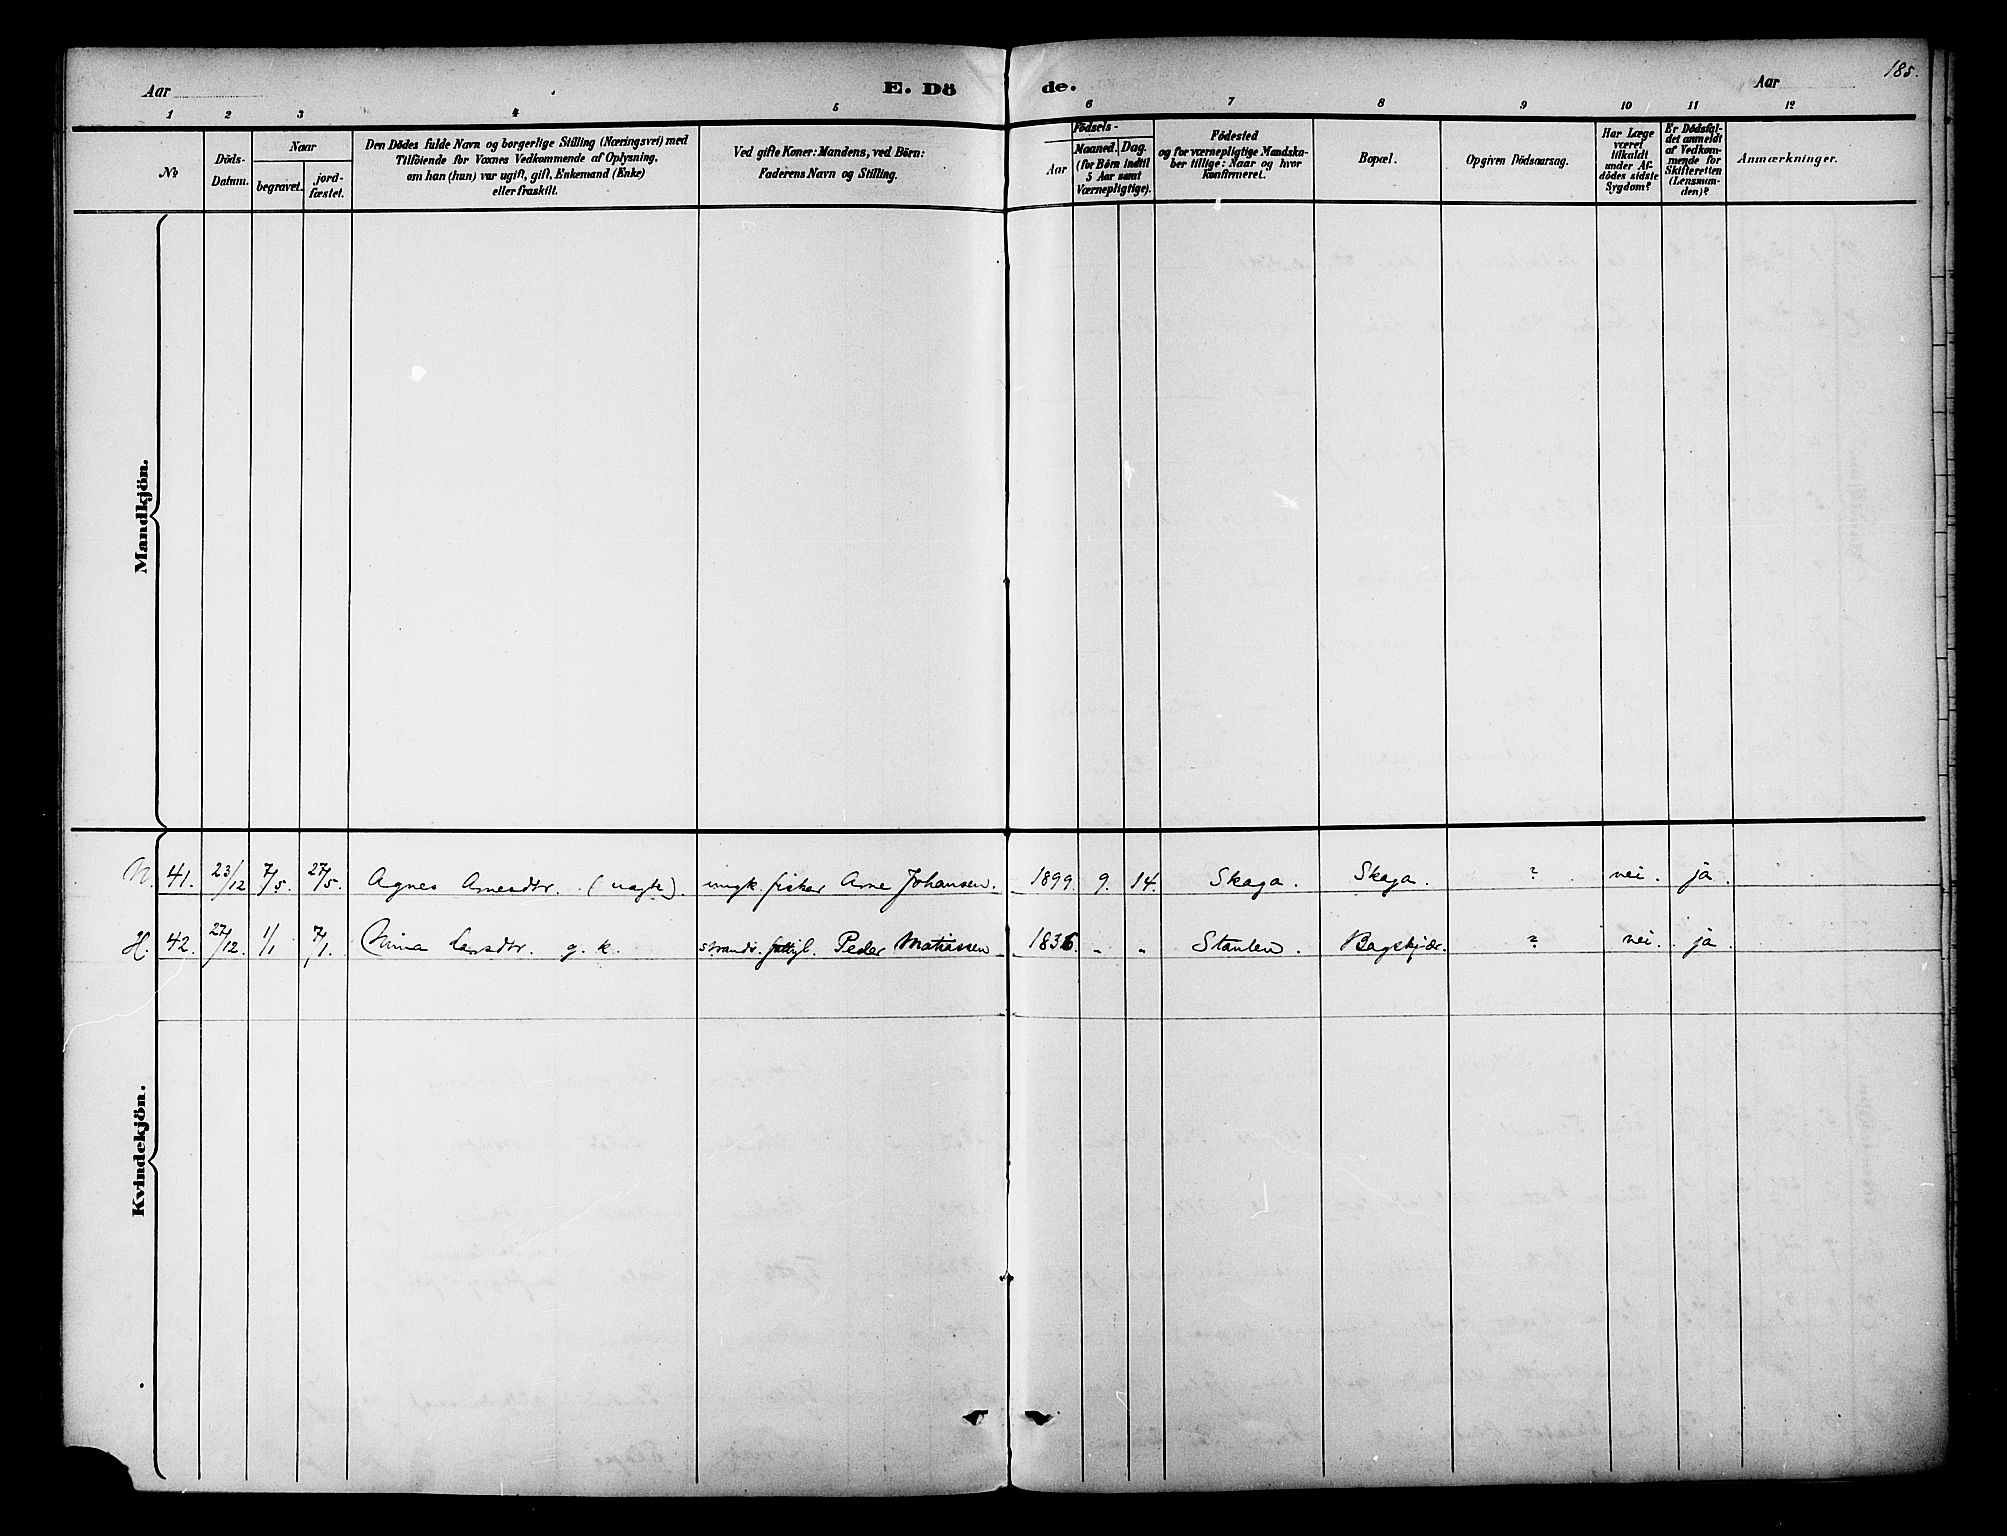 185.
Aar
E. Dö
de.
Aar
1 2 3 4 5 6 7 8 9 10 11 12
No
Döds-
Datum.
Naar
begravet.
jord-
fæstet.
Den Dödes fulde Navn og borgerlige Stilling (Næringsvei) med
Tilföiende for Voxnes Vedkommende af Oplysning,
om han (hun) var ugift, gift, Enkemand (Enke)
eller fraskilt.
Ved gifte Koner: Mandens, ved Börn:
Faderens Navn og Stilling.
Födsels-
Aar
Maaned. Dag.
(for Börn indtil
5 Aar samt
Værnepligtige).
Födested
og for værnepligtige Mandska-
ber tillige: Naar og hvor
konfirmeret.
Bopæl.
Opgiven Dödsaarsag.
Har Læge
været
tilkaldt
under Af-
dödes sidste
Sygdom?
Er Dödsfal-
det anmeldt
af Vedkom-
mende for
Skifteretten
(Lensman-
den)?
Anmærkninger.
Mandkjön.
N. 41. 23/12 7/5. 27/5. Agnes Arnesdtr. (uægte). ungk. fisker Arne Johansen. 1899. 9. 14. Skaga. Skaga. ? nei. ja.
H. 42. 27/12. 1/1 7/1. Larsdtr. g. k. Peder Matiassen 1836. " " Staulen. Bagskjær. ? nei. ja
Kvindekjön.